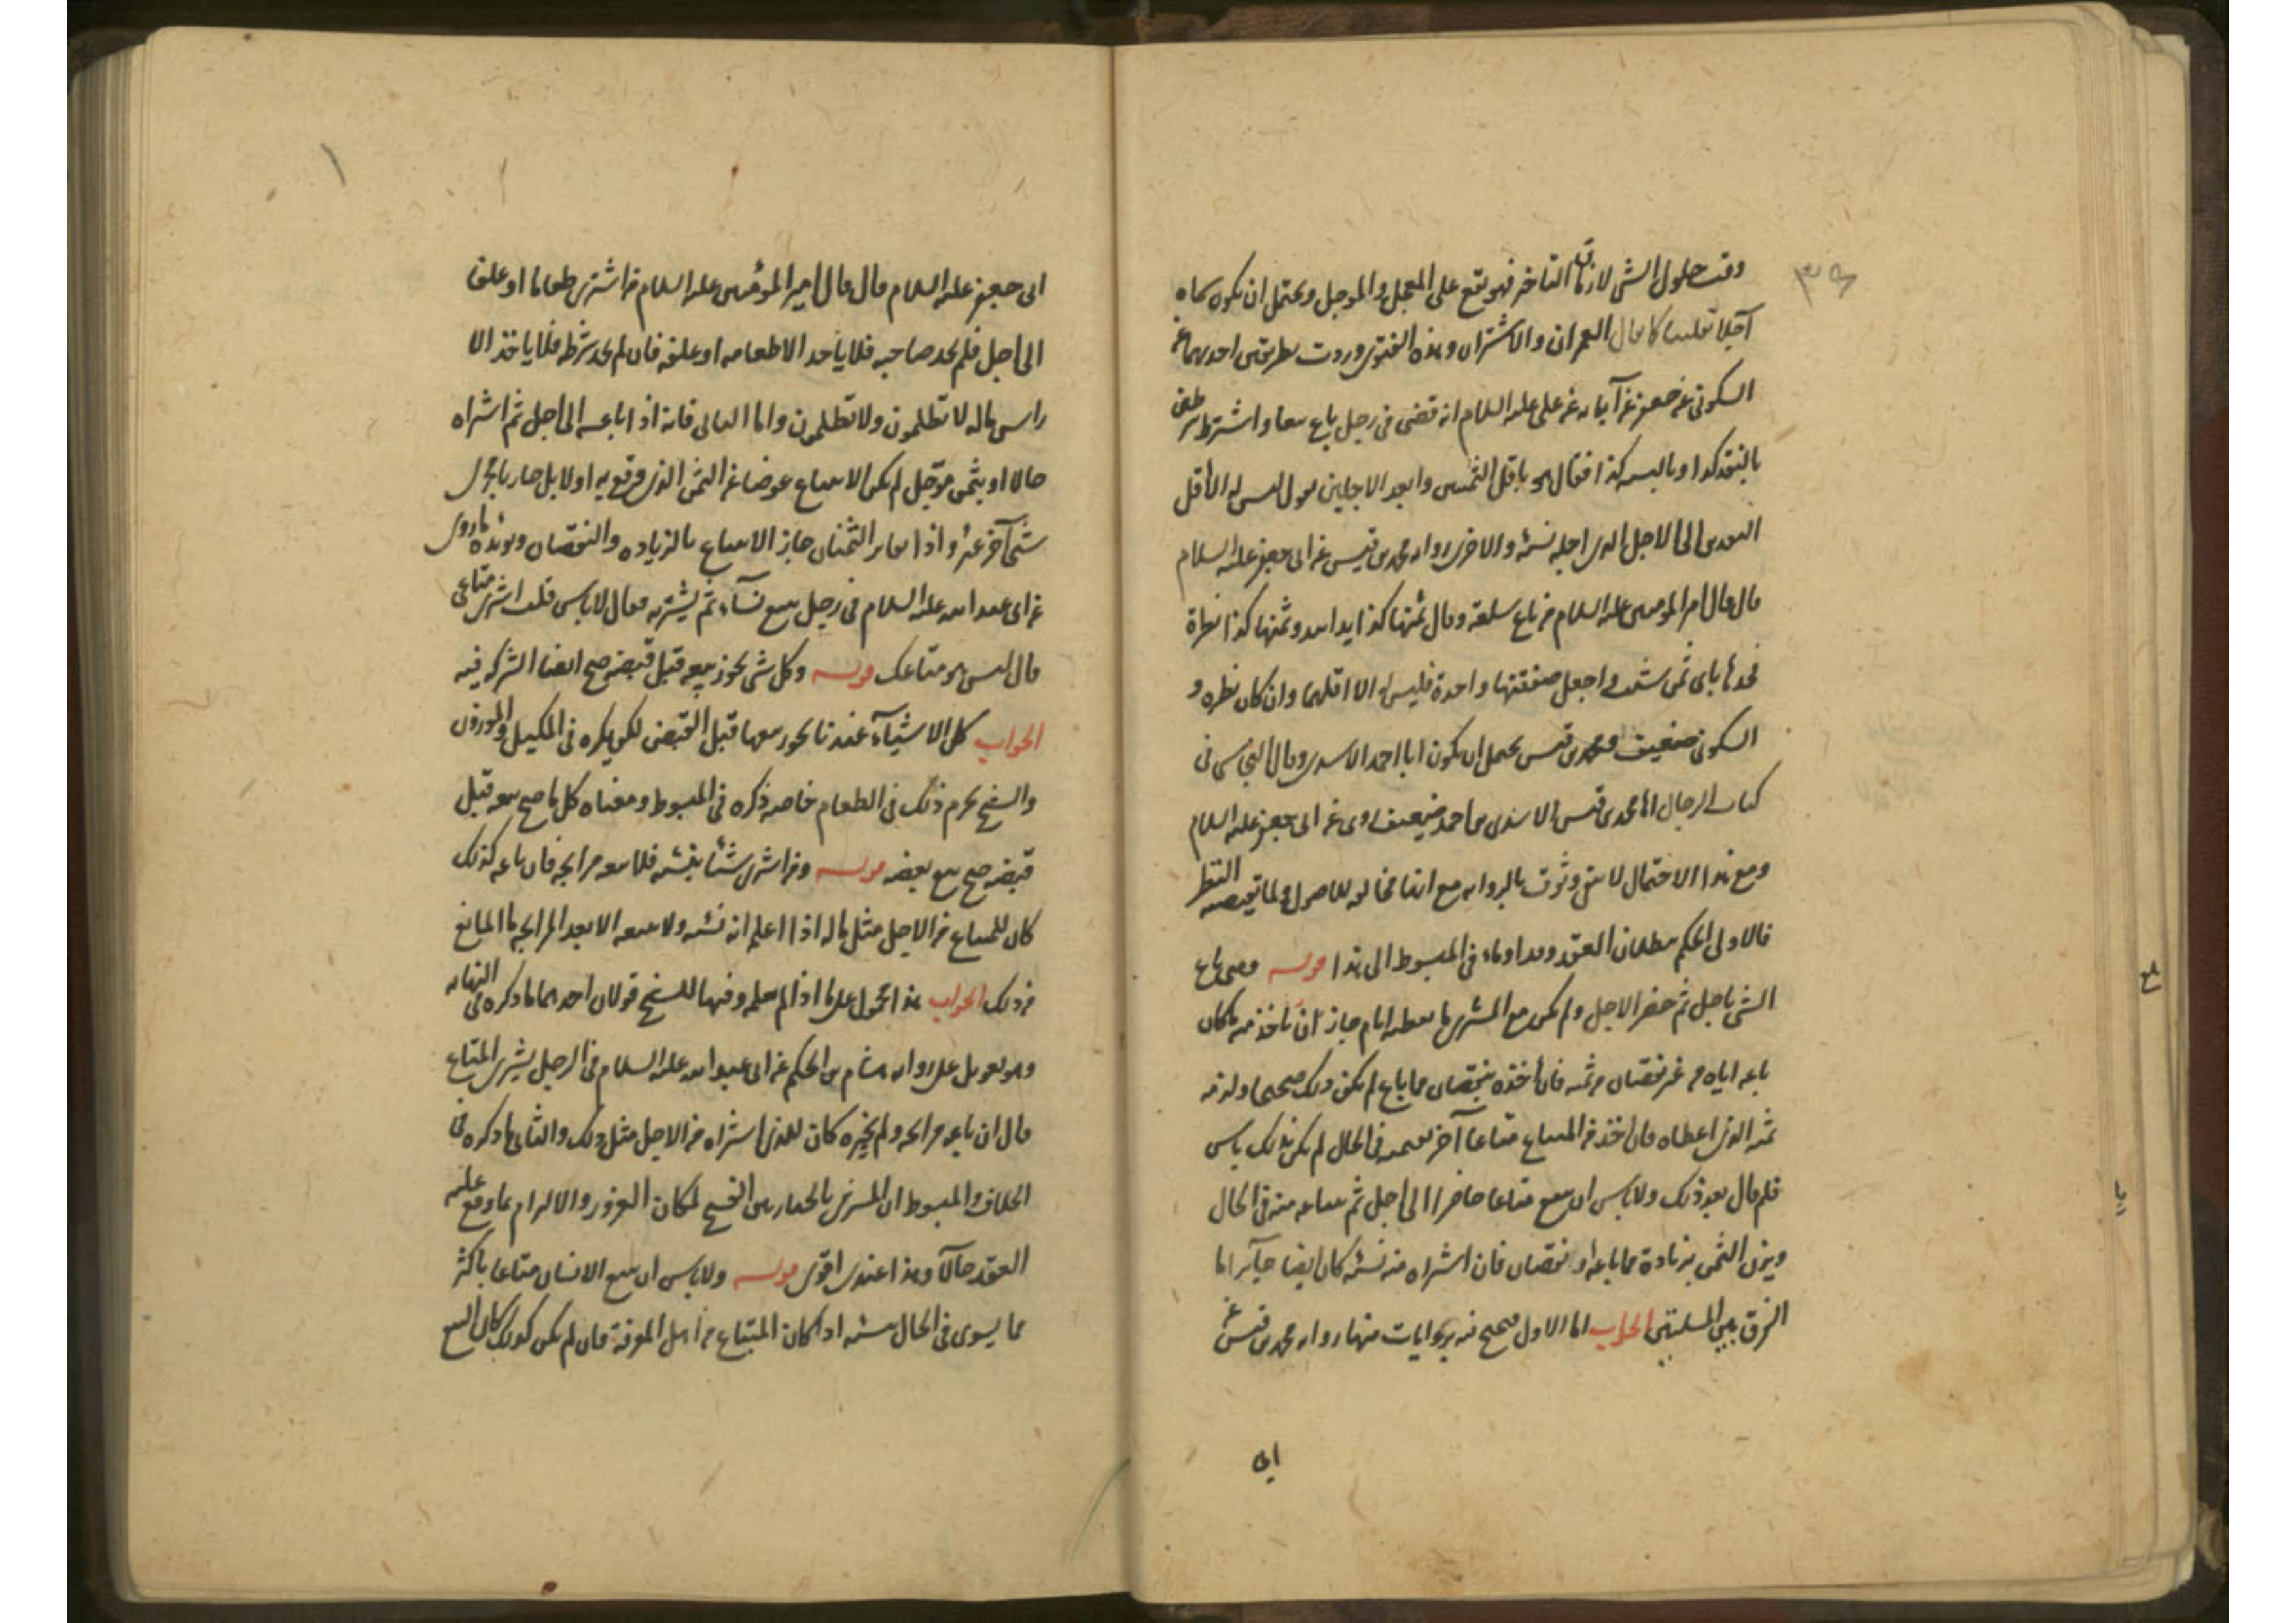 وقت حلول الشىء لازمان التاخر فهو يقع على المعجل والموجل ويحتمل ان يكون سماه
آجلا تغليبا كما يقال العمران والاشتران وهذه الفتوى وردت بطريقين احديهما عن
السكونى عن جعفر عن آبائه عن على عليه السلام انه قضى فى رجل باع بيعا واشترط شرطين
بالنقد كذا وبالنسيه كذا فقال هو باقل الثمنين وابعد الاجلين يقول ليس له الا اقل
النقدين الى الاجل الذى اجله نسئه والاخرى رواه محمد بن قيس عن ابى جعفر عليه السلام
قال قال امير المومنين عليه السلام من باع سلعة وقال ثمنها كذا يدا بيد وثمنها كذا نظرة
فخذها باى ثمن شئت واجعل صفقتها واحدة فليس له الا اقلهما وان كان نظره و
السكونى ضعيف ومحمد بن قيس يحتمل ان يكون ابا احمد الاسدى وقال النجاشى فى
كتاب الرجال اما محمد بن قيس الاسدى بن احمد ضعيف روى عن ابى جعفر عليه السلام
ومع هذا الاحتمال لا يبقى وثوق بالروايه مع انها مخالفه للاصول ولما يقتضيه النظر
فالاولى الحكم ببطلان العقد وقد اومأ فى المبسوط الى هذا قوله ومتى باع
الشى باجل ثم حضر الاجل ولم يكن مع المشترى ما يعطيه اياه جاز ان ياخذ منه ما كان
باعه اياه من غير نقصان من ثمنه فان أخذه بنقصان مما باع لم يكن ذلك صحيحا ولزمه
ثمنه الذى اعطاه فان اخذ من المبتاع متاعا آخر بقيمته فى الحال لم يكن بذلك باس
ثم قال بعد ذلك ولا باس ان يبيع متاعا حاضرا الى اجل ثم يبتاعه منه فى الحال
ويزن الثمن بزيادة مما باعه او نقصان فان اشتراه منه نسئه كان ايضا جآئزا ما
الفرق بين المسئلتين الجواب اما الاول صحيح فيه بروايات منها رواه محمد بن قيس عن
ابى
ابى جعفر عليه السلام قال قال امير المؤمنين عليه السلام من اشترى طعاما او علفا
الى اجل فلم يجد صاحبه فلا ياخذ الا طعامه او علفه فان لم يجد شرطه فلا ياخذ الا
راس ماله لا تظلمون ولا تظلمون واما الثانى فانه اذا باعه الى اجل ثم اشتراه
حالا او بثمن مؤجل لم يكن الابتياع عوضا عن الثمن الذى وقع به اولا بل صار بمجرى
شىء آخر غيره واذا تغاير الثمنان جاز الابتياع بالزياده والنقصان ويؤيده ما روى
عن ابى عبد الله عليه السلام فى رجل يبيع نسآء ثم يشتريه فقال لا باس قلت اشترى متاعى
قال ليس هو متاعك قوله وكل شى يجوز بيعه قبل قبضه صح ايضا الشركه فيه
الجواب كل الاشيآء عندنا يجوز بيعها قبل القبض لكن يكره فى المكيل والموزون
والشيخ يحرم ذلك فى الطعام خاصه ذكره فى المبسوط ومعناه كل ما صح بيعه قبل
قبضه صح بيع بعضه قوله ومن اشترى شيئا بنسئه فلا يبيعه مرابحه فان باعه كذلك
كان للمبتاع من الاجل مثل ماله اذا اعلم انه نسئه ولا يبيعه الا بعد المرابحه ما المانع
من ذلك الجواب هذا محمول على ما اذا لم يعلمه وفيها للشيخ قولان احدهما ما ذكره فى النهايه
وهو تعويل على روايه هشام بن الحكم عن ابى عبد الله عليه السلام فى الرجل يشترى المتاع
قال ان باعه مرابحه ولم يخبره كان للذى اشتراه من الاجل مثل ذلك والثانى ما ذكره فى
الخلاف والمبسوط ان المشترى بالخيار بين الفسخ لمكان الغرور والالزام بما وقع عليه
العقد حالآ وهذا عندى اقوى قوله ولا باس ان يبيع الانسان متاعا باكثر
مما يسوى فى الحال بنسئه اذا كان المبتاع من اهل المعرفة فان لم يكن كذلك كان البيع